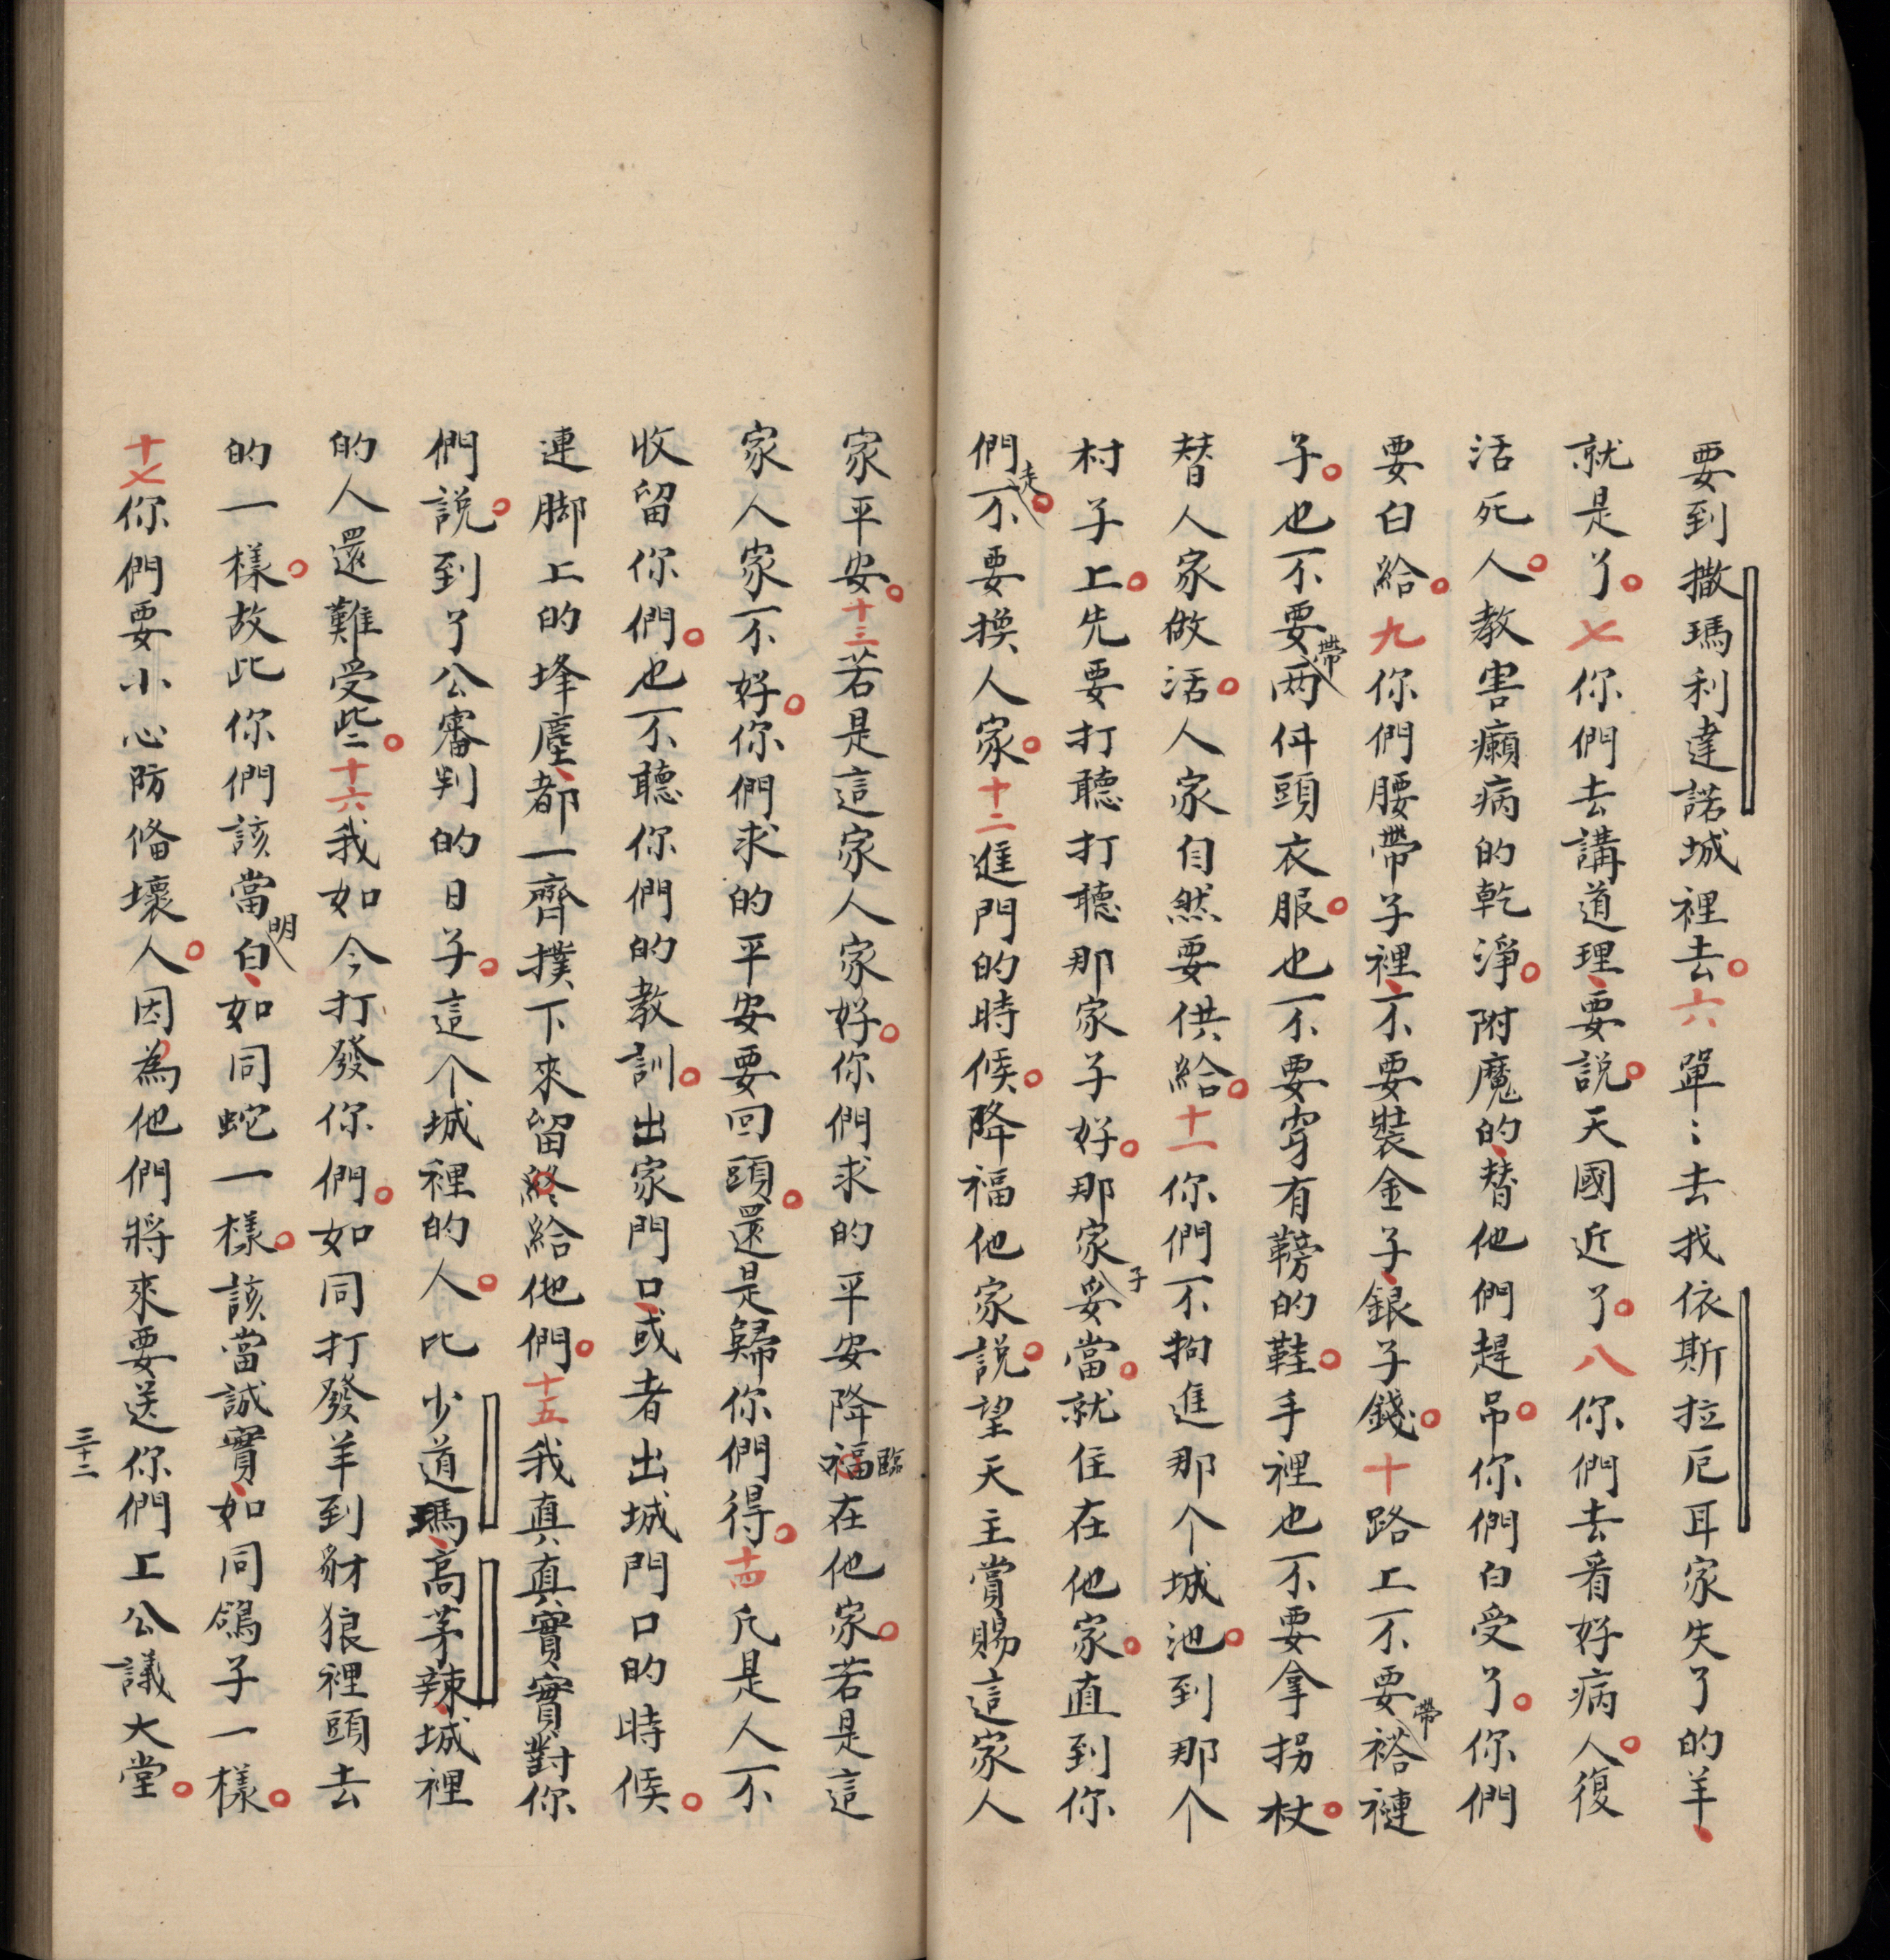 要到撒瑪利達諾城裡去。六單〻去找依斯拉厄耳家失了的羊、
就是了。七你們去講道理、要說。天國近了。八你們去看好病人。復
活死人。教害癩病的乾淨。附魔的、替他們趕吊。你們白受了。你們
要白給。九你們腰帶子裡、不要裝金子、銀子錢。十路上不要帶褡褳
子。也不要帶两件頭衣服。也不要穿有鞤的鞋。手裡也不要拿拐杖。
替人家做活。人家自然要供給。十一你們不拘進那个城池。到那个
村子上。先要打聽打聽那家子好。那家子妥當。就住在他家。直到你
們走。不要換人家。十二進門的時候。降福他家說。望天主賞賜這家人
家平安。十三若是這家人家好。你們求的平安降福臨在他家。若是這
家人家不好。你們求的平安要回頭。還是歸你們得。十四凢是人不
收留你們。也不聽你們的教訓。出家門口、或者出城門口的時候。
連脚上的垰塵、都一齊撲下來留終給他們。十五我真真實實對你
們說。到了公審判的日子。這个城裡的人。比少道瑪、高茅辣、城裡
的人還難受些〻。十六我如今打發你們。如同打發羊到豺狼裡頭去
的一樣。故此你們該當明白、如同蛇一樣。該當誠實、如同鴿子一樣。
十七你們要小心防俻壞人。因為他們將來要送你們上公議大堂。
三十二